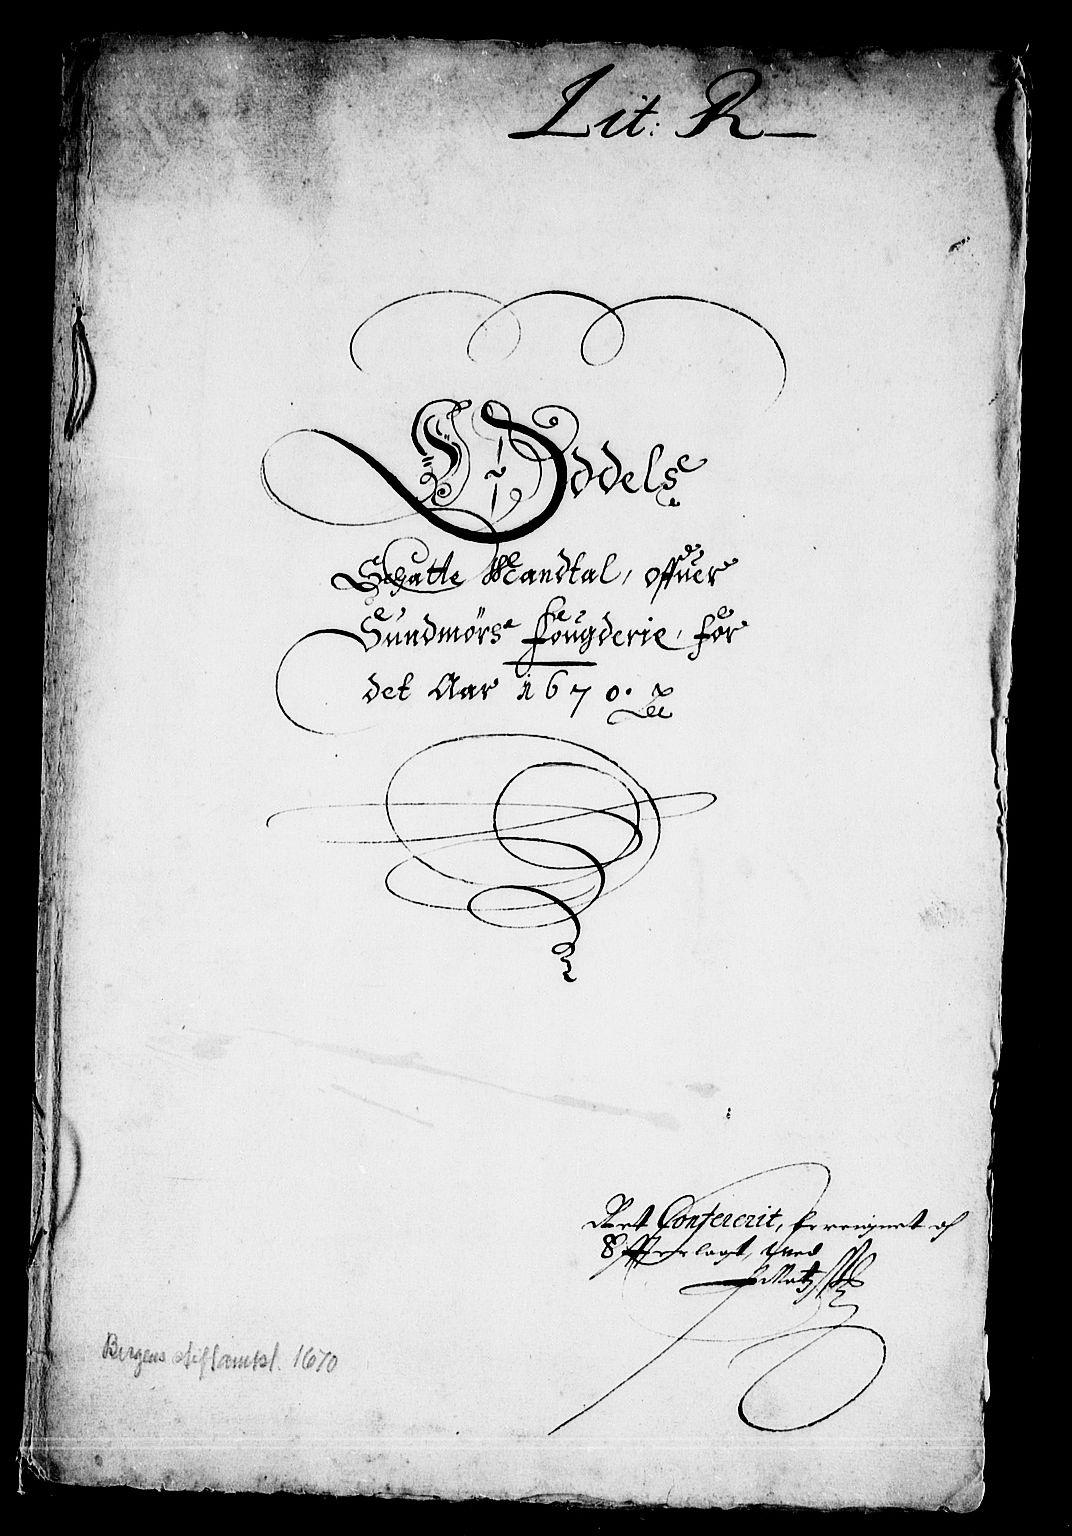 Lit: R
Oddels
Schatte Mandtal, offuer
Sundmørs fougderie, for
det Aar 1670.
Confererit,
lagt, wed
Bergens stiftamtst. 1670